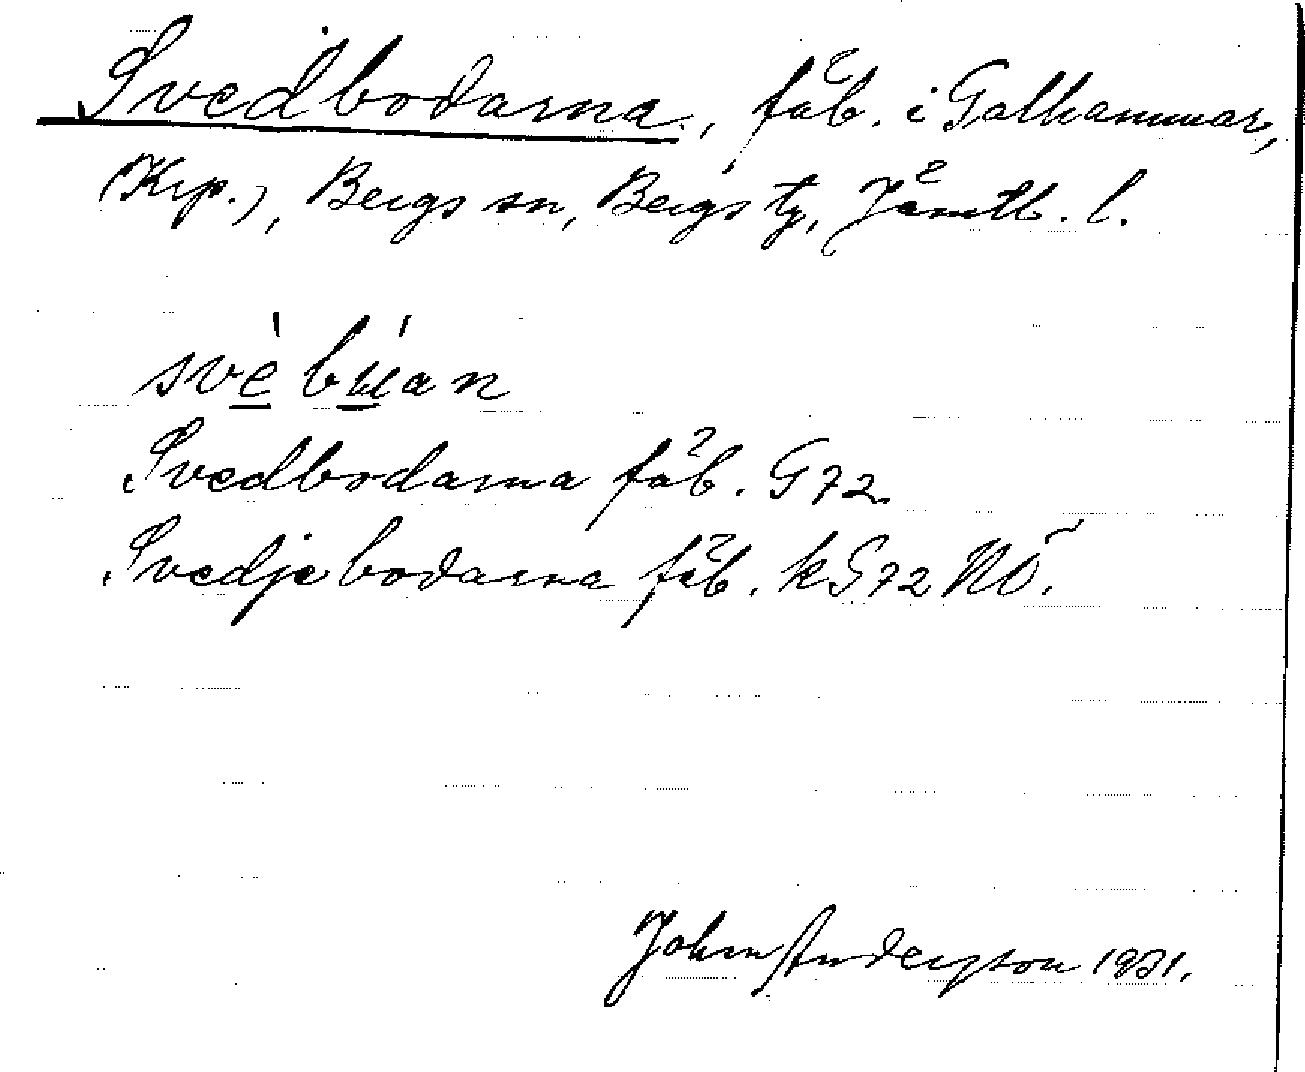 Svedbodarna, fäb. i Galhammar,
(Krp.), Bergs sn, Bergs tg, Jämtl. l.
svè bu̲an
Svedbodarna fäb. G72
Svedjebodarna fäb. k G72 NÖ.
John Anderson 1931.